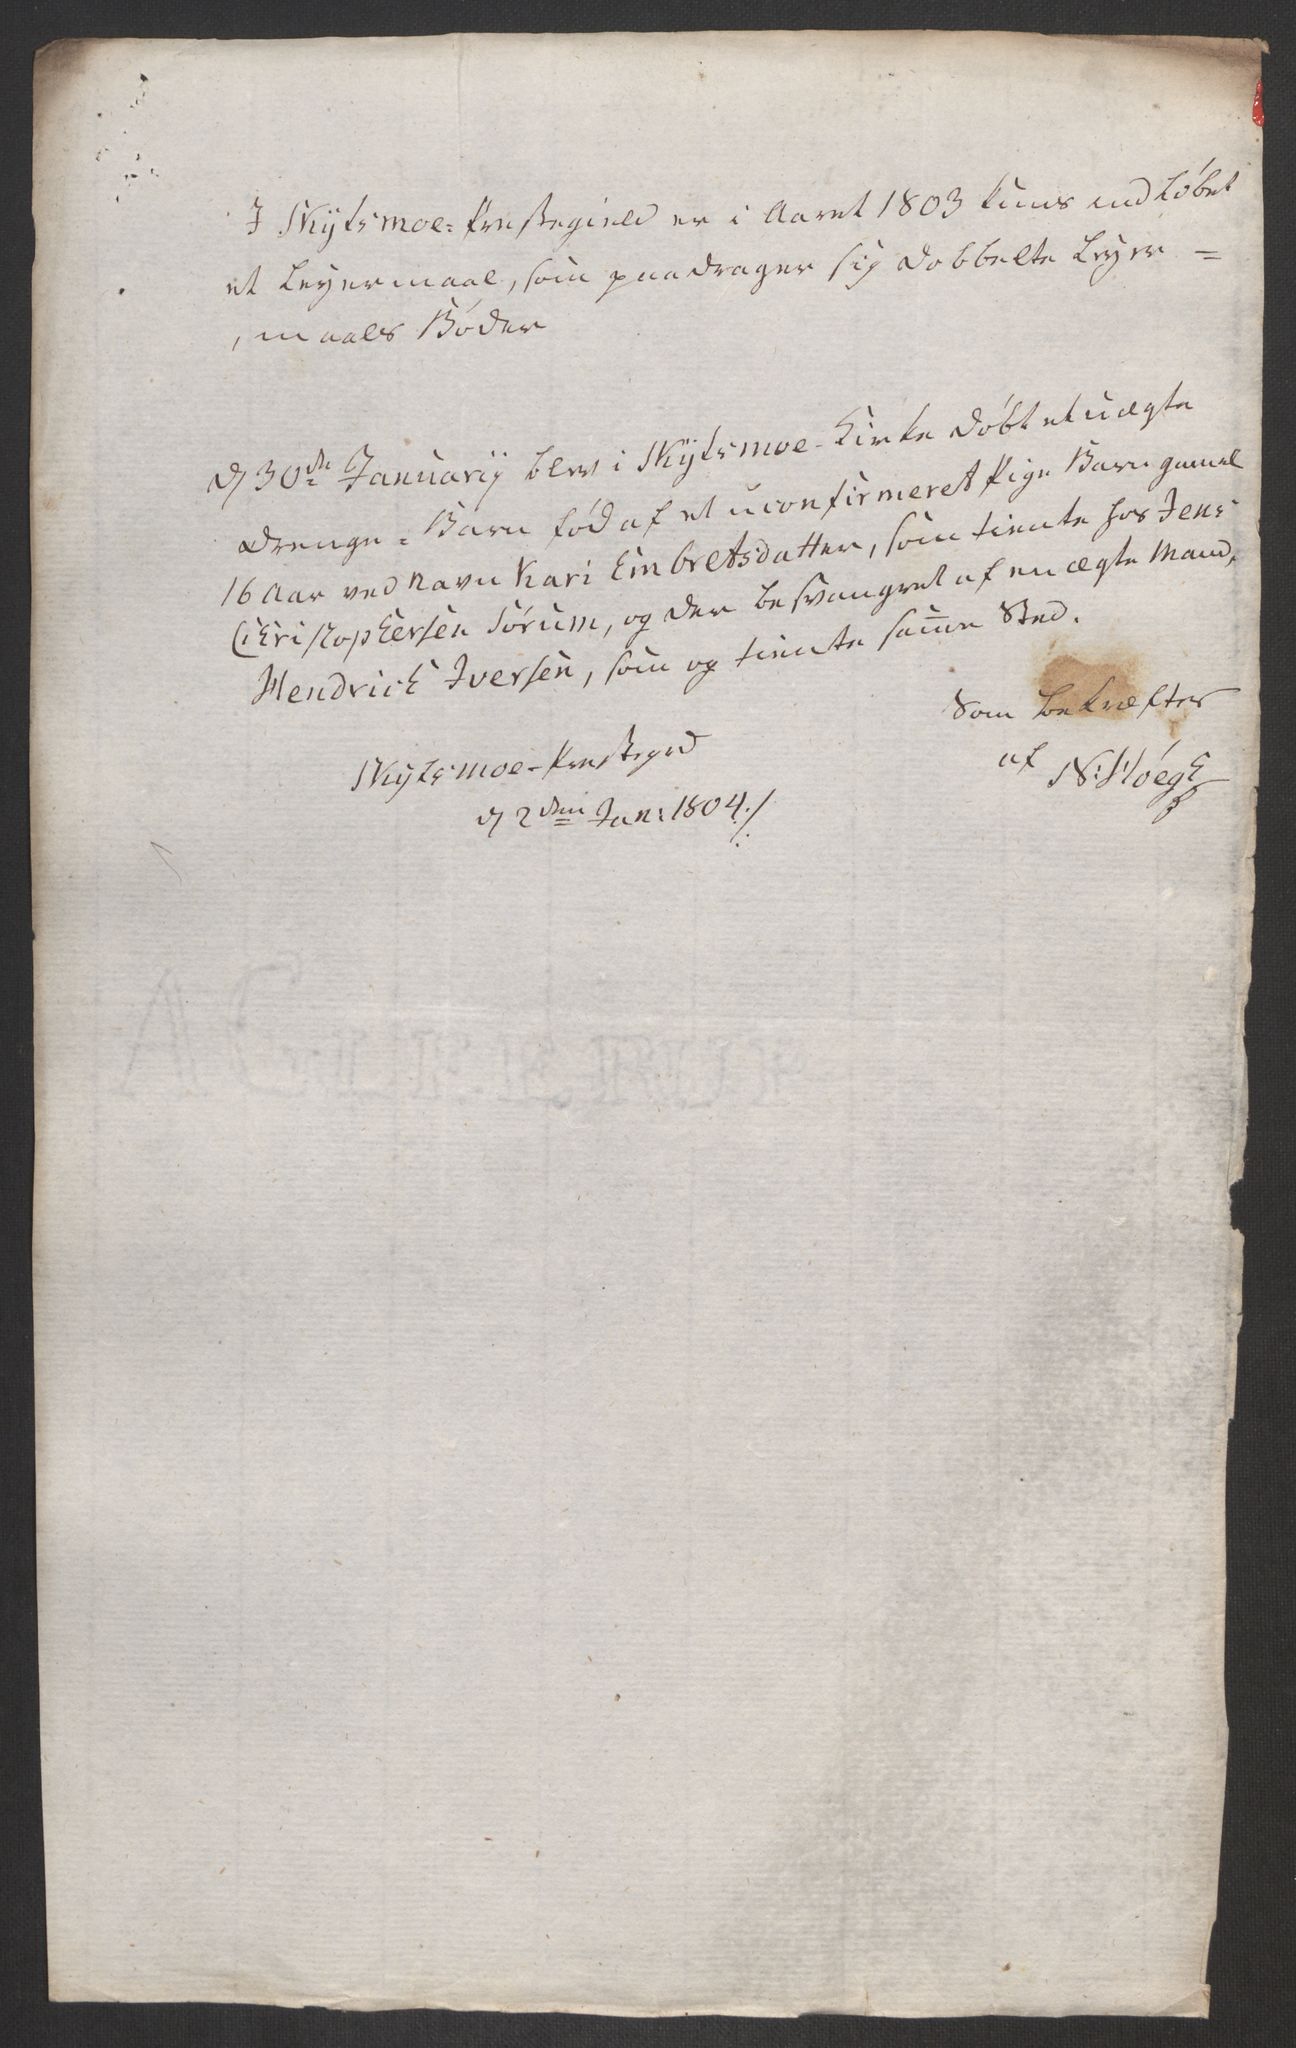 I Skydsmoe-Præstegield er i Aaret 1803 kuns indløbet
et Leyermaal, som paadrager sig dobbelte Leyer =
,maals Bøder
d 30de Januarij blev i Skydsmoe-Kirke døbt et uægte
Drenge-Barn fød af et uconfirmeret Pige Barn gamel
16 Aar ved navn Kari Embretsdatter, som tiente hos Jens
Christophersen Sørum, og der besvangret af en ægte Mand,
Hendrich Iversen, som og tiente samme Sted.
Som bekræfter
af N: Høegh
Skydsmoe-Præstegrd
d 2den Jan: 1804 ./.